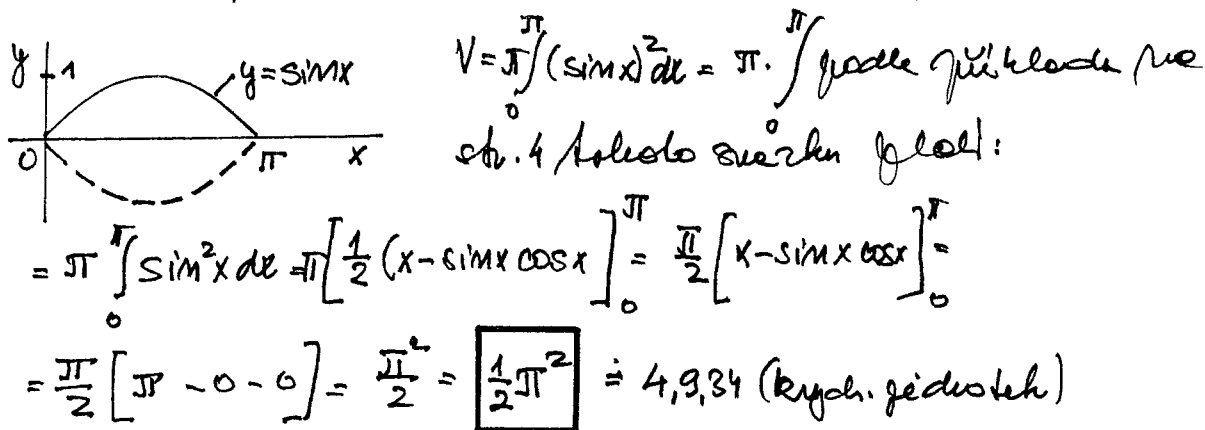 y 1 y=sinx V=π∫₀^π(sinx)²dx = π·∫₀^π podle příkladu na
0 π x str. 4 tohoto svazku platí:
= π∫₀^π sin²x dx = π[½(x-sinx cosx]₀^π = π/2[x-sinx cosx]₀^π =
= π/2[π - 0 - 0] = π²/2 = ½π² ≐ 4,9,34 (krych. jednotek)